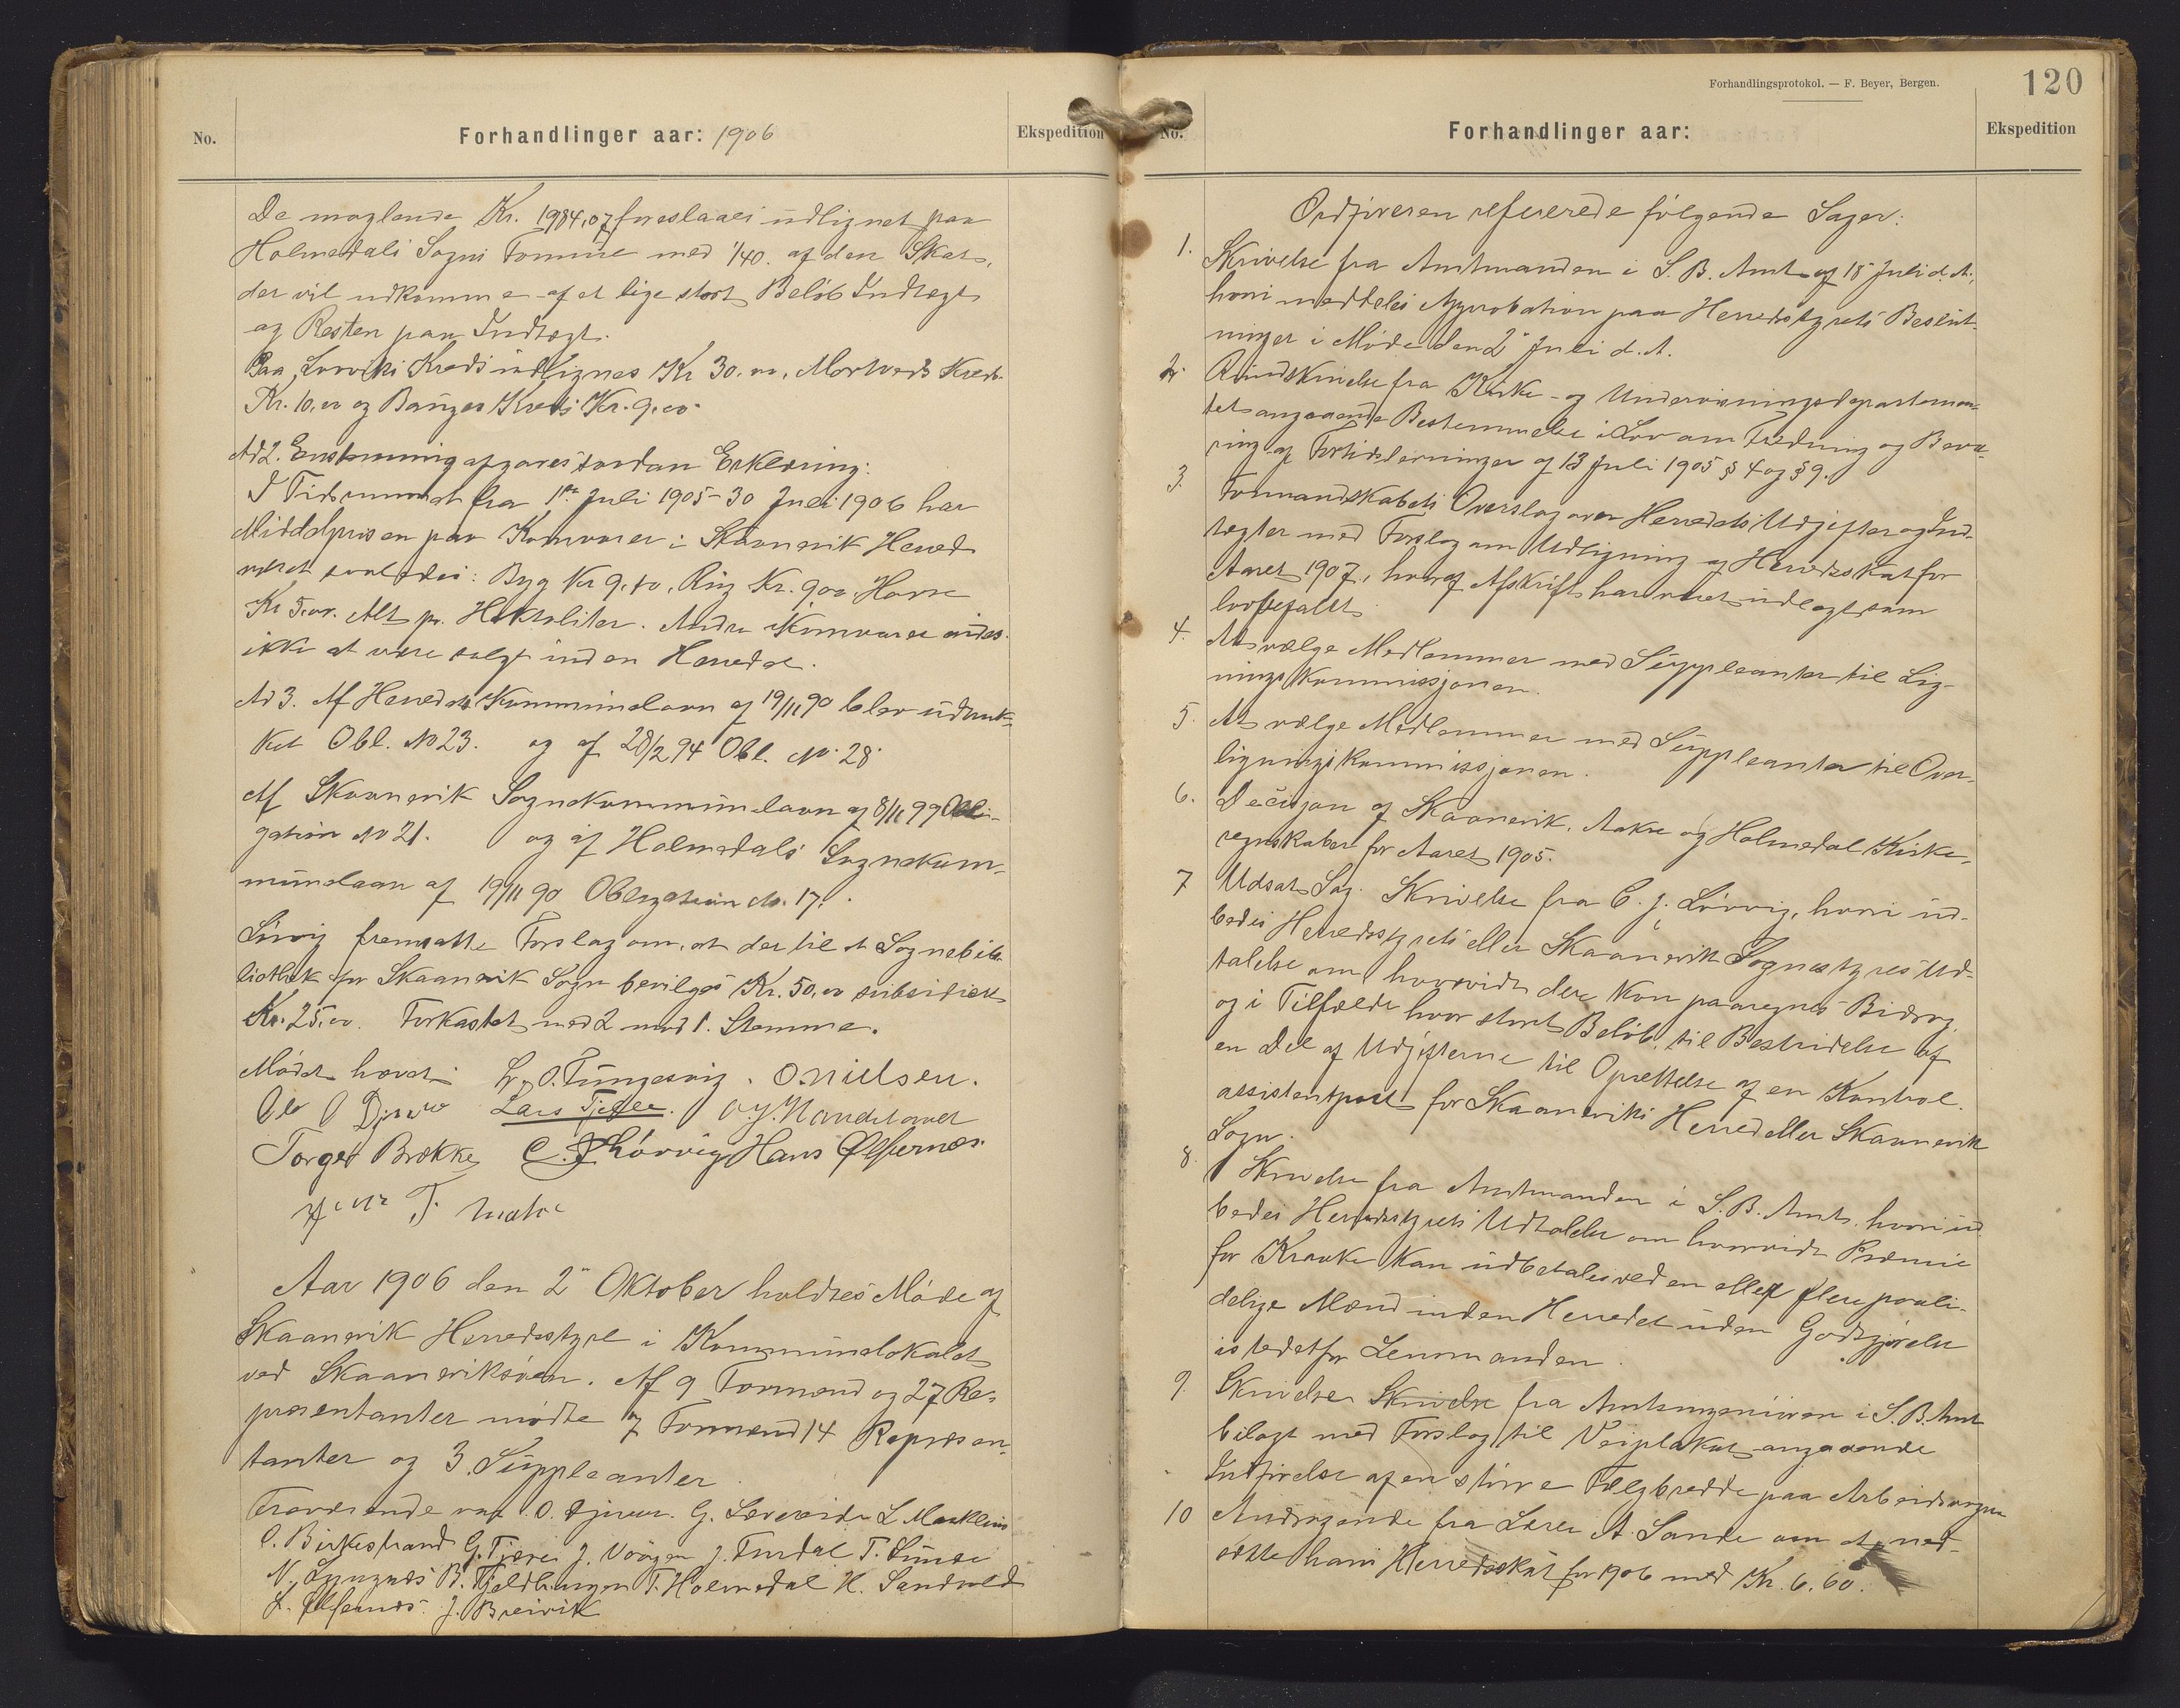 No.
Forhandlinger aar: 1906
Ekspedition
De manglende Kr. 1984,07 foreslaaes udlignet paa
Holmedals Sogns Formue med 1/40 af den Skat,
der vil udkomme af et lige stort Beløb Indtægt
og Resten paa Indtægt.
Paa Kreds udlignes Kr 30.00, Kreds
Kr. 10,00 og Kreds Kr. 9.00.
Ad 2. Enstemmig afgaves saadan Erklæring:
I Tidsrummet fra 1ste Juli 1905 - 30 Juni 1906 har
Middelprisen paa Kornvarer i Skaanevik Herred
været saaledes: Byg Kr 9,50, Rug Kr. 9,00, Havre
Kr 5.00. Alt pr. Hektoliter. Andre Kornvarer vides
ikke at være solgt inden Herredet.
Ad 3. Af Herredets Kommunelaan af 19/11 90 blev udtruk-
ket Obl. No 23. og af 28/2 94 Obl. No. 28
Af Skaanevik Sognekommunelaan af 8/11 99 Obli-
gation No 21. og af Holmedals Sognekom-
munelaan af 19/11 90 Obligation No. 17.
Lúvig fremsatte Forslag om, at der til et Sognebib-
liothek for Skaanevik Sogn bevilges Kr. 50,00 subsidiært
Kr. 25,00. Forkastet med 2 mod 1. Stemme.
Mødet hævet. O. Tungesvig. O. Nielsen.
Ole O Lars Tjelle.
Torger Brekke C. J. Lórvig Hans Ølfernes
T. Matre
Aar 1906 den 2" Oktober holdtes Møde af
Skaanevik Herredsstyre i Kommunelokalet
ved Skaaneviksøen. Af 9 Formænd og 27 Re-
præsentanter mødte 7 Formænd 14 Repræsen-
tanter og 3 Suppleanter
Fraværende var O. G. L.
O. Birkestrand G. Tjære J. J. Furdal T.
N. B. Fjeldhaugen T. Holmedal H. Sandvold
L. Ølfernes. J. Breivik
Forhandlingsprotokol. — F. Beyer, Bergen.
120
No.
Forhandlinger aar:
Ekspedition
Ordføreren refererede følgende Sager:
1. Skrivelse fra Amtmanden i S. B. Amt af 18 Juli d. A.,
hvori meddeles Approbation paa Herredsstyrets Beslut-
ninger i Møde den 2" Juli d. A.
2. Rundskrivelse fra Kirke- og Undervisningsdepartemen-
tet angaaende Bestemmelse i Lov om Fredning og Beva-
ring af Fortidslevninger af 13 Juli 1905 § 4 og § 9.
3. Formandskabets Overslag over Herredets Udgifter og Ind-
tægter med Forslag om Udligning af Herredsskat for
Aaret 1907, hvoraf Afskrift har været udlagt som
lovbefalt.
4. At vælge Medlemmer med Suppleanter til Lig-
ningskommissjonen.
5. At vælge Medlemmer med Suppleanter til Over-
ligningskommissjonen.
6. Decisjon af Skaanevik, Aakre og Holmedal Kirke-
regnskaber for Aaret 1905.
7 Udsat Sag. Skrivelse fra C. J. Lórvig, hvori ud-
bedes Herredsstyrets eller Skaanevik Sognestyres Ud-
talelse om hvorvidt der kan paaregnes Bidrag
og i Tilfælde hvor stort Beløb, til Bestridelse af
en Del af Udgifterne til Oprettelse af en Kontrol-
assistentpost for Skaaneviks Herred eller Skaanevik
Sogn.
8. Skrivelse fra Amtmanden i S. B. Amt, hvori ud-
bedes Herredsstyrets Udtalelse om hvorvidt Præmie
for Kraake kan udbetales ved en eller flere paali-
delige Mænd inden Herredet uden Godtgjørelse
istedetfor Lensmanden.
9. Skrivelse Skrivelse fra Amtsingeniøren i S. B. Amt
bilagt med Forslag til Veiplakat angaaende
Indførelse af en større Fælgbredde paa Arbeidsvogne
10 Andragende fra Lærer A. Sande om at ned-
sætte hans Herredsskat for 1906 med Kr. 6.60.